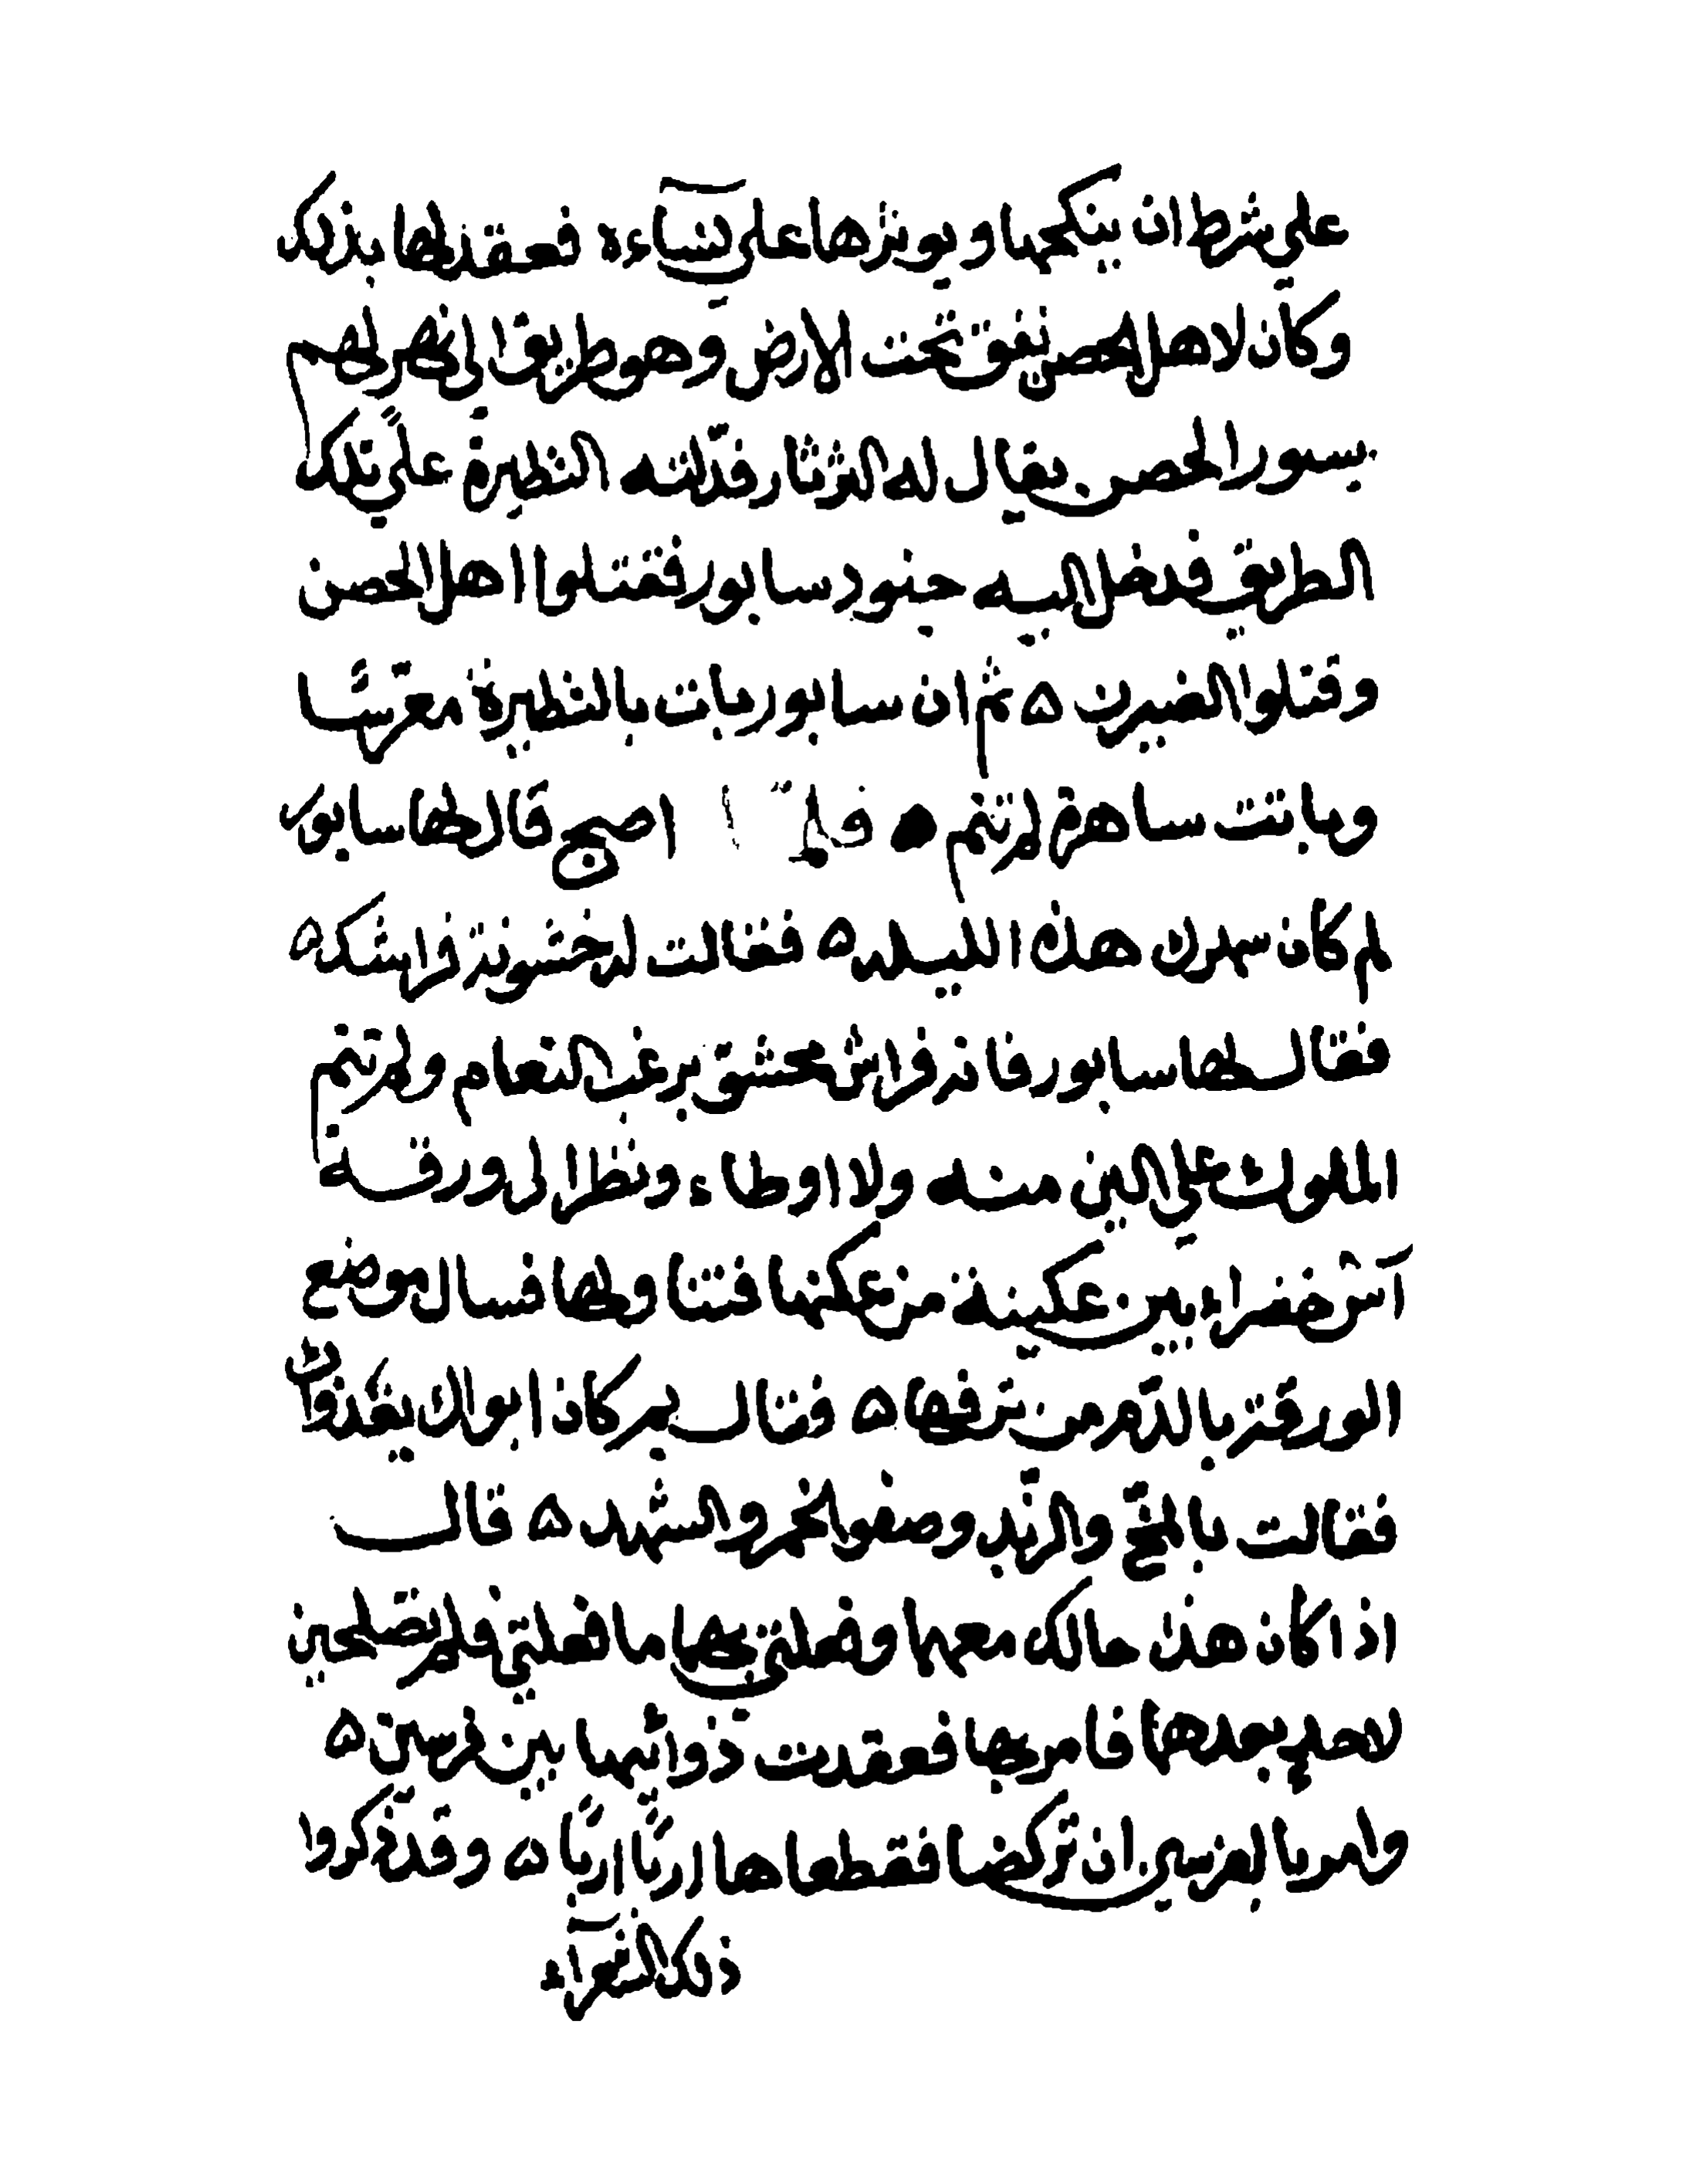 على شرط ان ينكحها ويوثرها على نساءه فعقد لها بذلك
وكان لاهل الحصن نفق تحت الارض وهو طريق الى نهر لهم
بسور الحصن يقال له الثرثار فدلته النظيرة على تلك
الطريق فدخل اليه جنود سابور فقتلوا اهل الحصن
وقتلوا الضيزن ۵ ثم ان سابور بات بالنظيرة معرسًا
وباتت ساهرة لم تنم فلما اصبح قال لها سابور
لم كان سهرك هذه الليله ۵ فقالت له خشونة فراشك ۵
فقال لها سابور فانه فراش محشو بزغب النعام ولم تنم
الملوك على الين منه ولا اوطاء ونظر الى ورقة
آس خضراء بين عكينة من عكنها فتناولها فسال موضع
الورقة بالدم من ترفها ۵ فقال بم كان ابواك يغذوانك
فقالت بالمخ والزبد وصفو الخمر والشهد ۵ قال
اذا كان هذا حالك معهما وفعلتي بهما ما فعلتي فلم تصلحين
لاحدٍ بعدهما فامر بها فعقدت ذوائبها بين فرسين ۵
وامر بالفرسين ان تركضا فقطعاها اربًا اربًا ۵ وقد ذكروا
ذلك الشعرآء